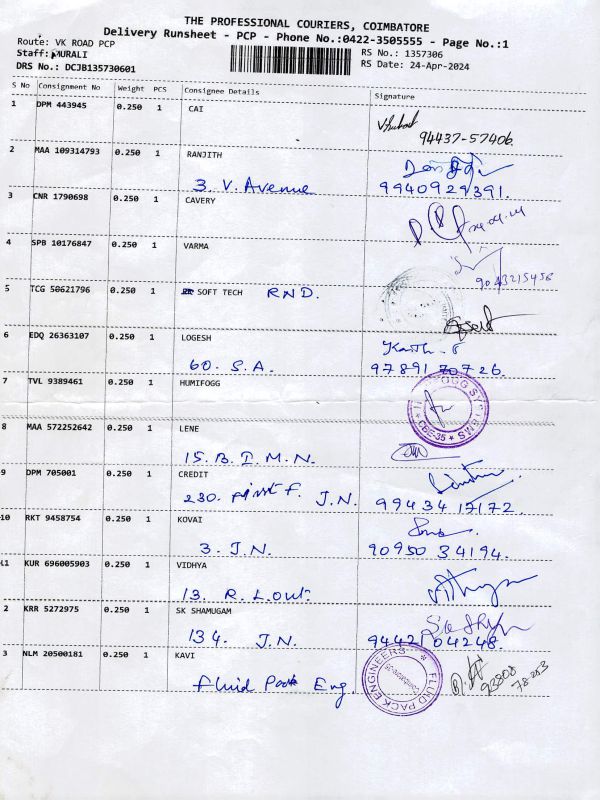 THE PROFESSIONAL COURIERS, COIMBATORE
Delivery Runsheet - PCP - Phone No.:0422-3505555 - Page No.:1
Route: VK ROAD PCP RS No.: 1357306
Staff: MURALI RS Date: 24-Apr-2024
DRS No.: DCJB135730601
S No Consignment No Weight PCS Consignee Details Signature
1 DPM 443945 0.250 1 CAI
94437-57406
2 MAA 109314793 0.250 1 RANJITH
3. V. Avenue 9940929391.
3 CNR 1790698 0.250 1 CAVERY
4 SPB 10176847 0.250 1 VARMA
9043215456
5 TCG 50621796 0.250 1 SOFT TECH RND.
6 EDQ 26363107 0.250 1 LOGESH
60. S.A. 97891 70726.
7 TVL 9389461 0.250 1 HUMIFOGG
CBE-35
8 MAA 572252642 0.250 1 LENE
15. B. I. M. N.
9 DPM 705001 0.250 1 CREDIT
230. First F. J.N. 99434 17172.
10 RKT 9458754 0.250 1 KOVAI
3. J.N. 90950 34194.
11 KUR 696005903 0.250 1 VIDHYA
13. R. L. Out.
2 KRR 5272975 0.250 1 SK SHAMUGAM
134. J.N. 9442104248.
3 NLM 20500181 0.250 1 KAVI
Fluid Pack Eng.
FLUID PACK ENGINEERS